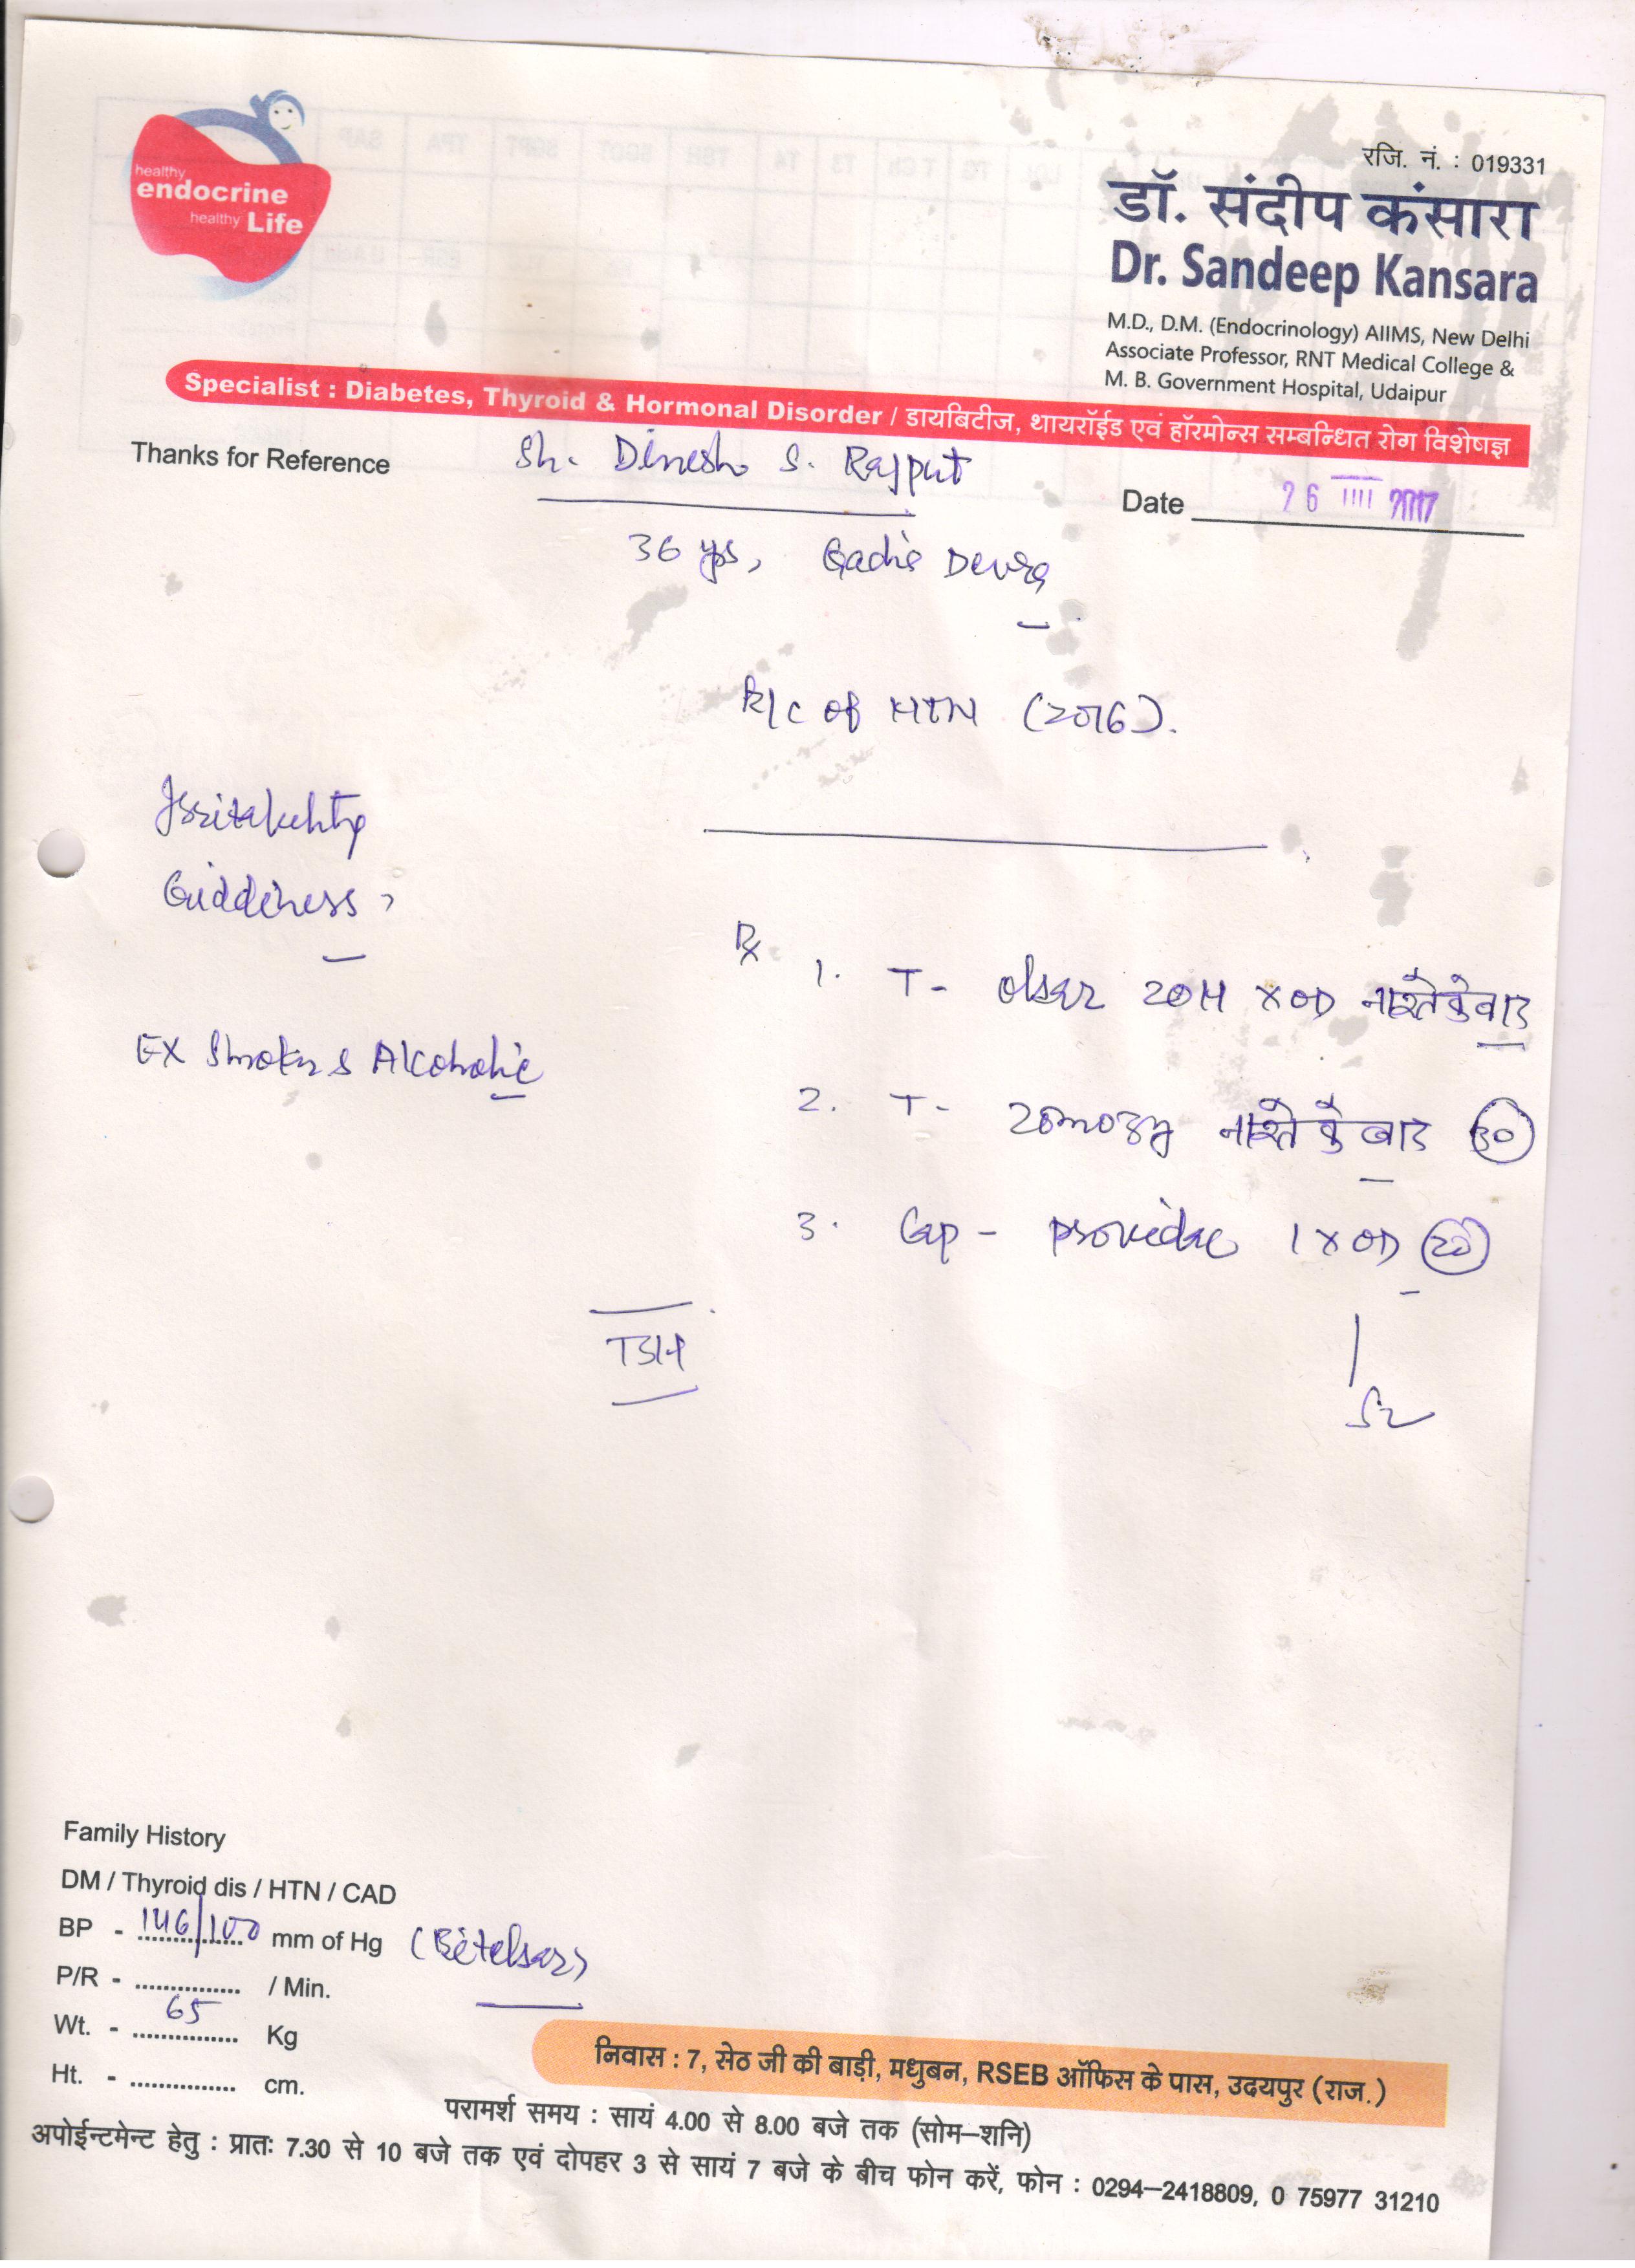 healthy
endocrine
healthy Life
रजि. नं. : 019331
डॉ. संदीप कंसारा
Dr. Sandeep Kansara
M.D., D.M. (Endocrinology) AIIMS, New Delhi
Associate Professor, RNT Medical College &
M. B. Government Hospital, Udaipur
Specialist : Diabetes, Thyroid & Hormonal Disorder / डायबिटीज, थायरॉईड एवं हॉरमोन्स सम्बन्धित रोग विशेषज्ञ
Thanks for Reference Sh. Dinesh S. Rajput
Date 26 2017
36 yrs,
K/C of HTN (2016).
Irritability
Giddiness,
Rx
1. T- Olsar 20H x OD नाश्ते के बाद
Ex Smoker & Alcoholic
2. T- नाश्ते के बाद 30
3. Cap - 1 x OD
TSH
Family History
DM / Thyroid dis / HTN / CAD
BP - 146/100 mm of Hg (Betelsar)
P/R - ............... / Min.
Wt. - 65 Kg
Ht. - ............... cm.
निवास : 7, सेठ जी की बाड़ी, मधुबन, RSEB ऑफिस के पास, उदयपुर (राज.)
परामर्श समय : सायं 4.00 से 8.00 बजे तक (सोम–शनि)
अपोईन्टमेन्ट हेतु : प्रातः 7.30 से 10 बजे तक एवं दोपहर 3 से सायं 7 बजे के बीच फोन करें, फोन : 0294–2418809, 0 75977 31210